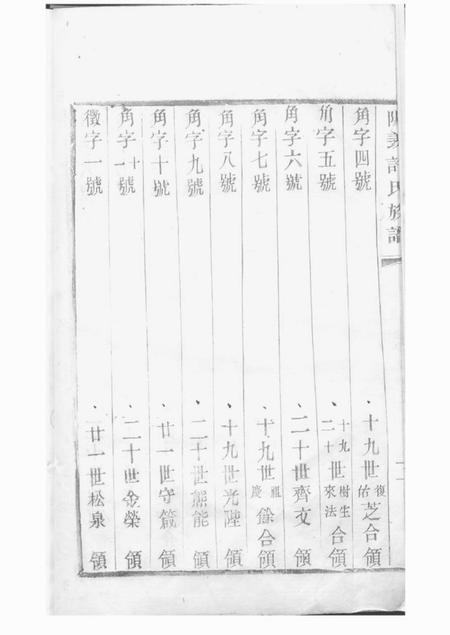 陽美許氏族譜
角字四號 十九世復佑芝合領
角字五號 十九二十世樹生來法合領
角字六號 二十世齊文領
角字七號 十九世祖慶餘合領
角字八號 十九世光陞領
角字九號 二十世熊能領
角字十號 廿一世守箴領
角字十一號 二十世金榮領
徵字一號 廿一世松泉領